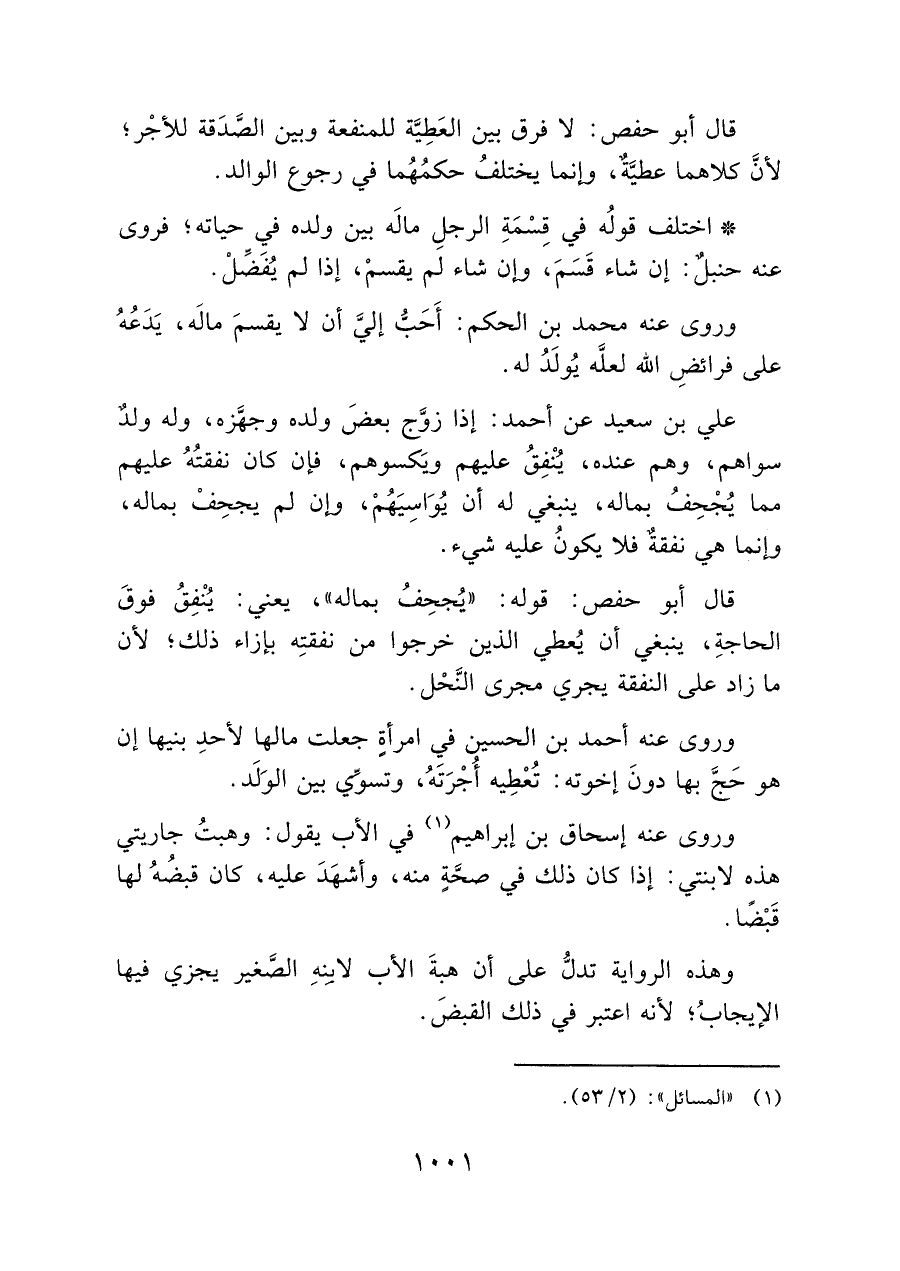 قال أبو حفص: لا فرق بين العَطِيَّة للمنفعة وبين الصَّدَقة للأجْر؛
لأنَّ كلاهما عطيَّةٌ، وإنما يختلفُ حكمُهُما في رجوع الوالد.
* اختلف قولُه في قِسْمَةِ الرجلِ مالَه بين ولده في حياته؛ فروى
عنه حنبلٌ: إن شاء قَسَمَ، وإن شاء لم يقسمْ، إذا لم يُفَضِّلْ.
وروى عنه محمد بن الحكم: أَحَبُّ إليَّ أن لا يقسمَ مالَه، يَدَعُهُ
على فرائضِ الله لعلَّه يُولَدُ له.
علي بن سعيد عن أحمد: إذا زوَّج بعضَ ولده وجهَّزه، وله ولدٌ
سواهم، وهم عنده، يُنْفِقُ عليهم ويَكسوهم، فإن كان نفقتُهُ عليهم
مما يُجْحِفُ بماله، ينبغي له أن يُوَاسِيَهُمْ، وإن لم يجحِفْ بماله،
وإنما هي نفقةٌ فلا يكونُ عليه شيء.
قال أبو حفص: قوله: «يُجحِفُ بماله»، يعني: يُنْفِقُ فوقَ
الحاجةِ، ينبغي أن يُعطي الذين خرجوا من نفقتِه بإزاء ذلك؛ لأن
ما زاد على النفقة يجري مجرى النَّحْل.
وروى عنه أحمد بن الحسين في امرأةٍ جعلت مالها لأحدِ بنيها إن
هو حَجَّ بها دونَ إخوته: تُعْطِيه أُجْرَتَهُ، وتسوِّي بين الوَلَد.
وروى عنه إسحاق بن إبراهيم(١) في الأب يقول: وهبتُ جاريتي
هذه لابنتي: إذا كان ذلك في صحَّةٍ منه، وأشهَدَ عليه، كان قبضُهُ لها
قَبْضًا.
وهذه الرواية تدلُّ على أن هبةَ الأب لابنِهِ الصَّغير يجزي فيها
الإيجابُ؛ لأنه اعتبر في ذلك القبضَ.
(١) «المسائل»: (٥٣/٢).
١٠٠١